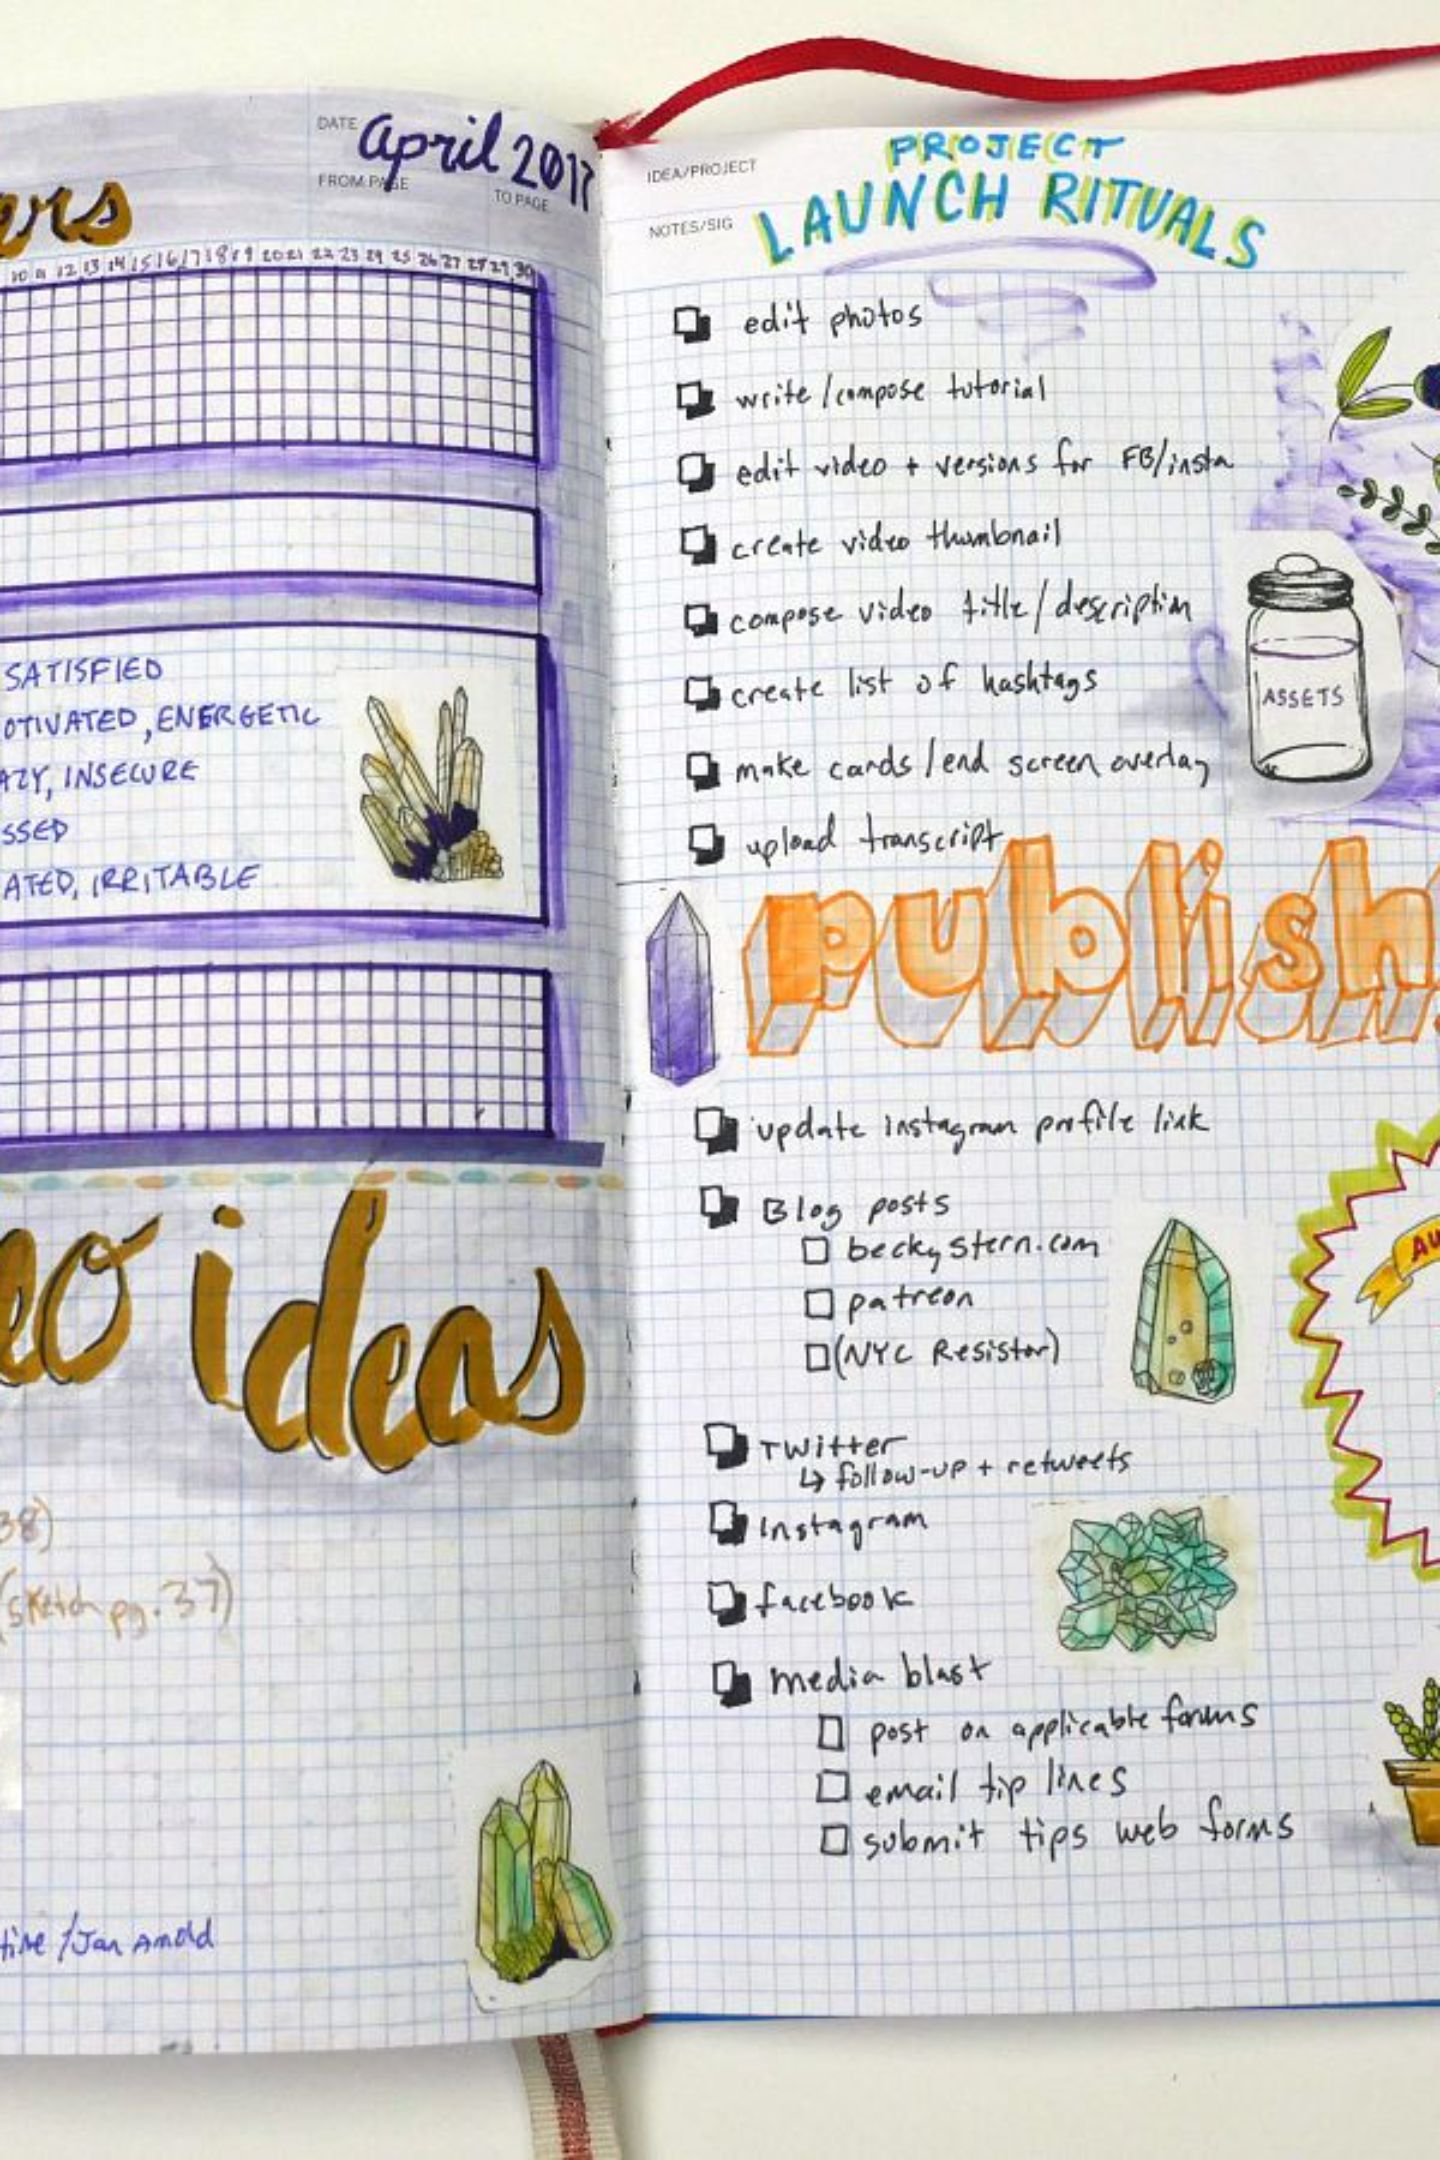 DATE april 2017
FROM PAGE
TO PAGE
10 11 12 13 14 15 16 17 18 19 20 21 22 23 24 25 26 27 28 29 30
SATISFIED
OTIVATED, ENERGETIC
AZY, INSECURE
SSED
ATED, IRRITABLE
eo ideas
38)
(sketch pg. 37)
time / Jan Arnold
IDEA/PROJECT
NOTES/SIG
PROJECT
LAUNCH RITUALS
edit photos
write/compose tutorial
edit video + versions for FB/insta
create video thumbnail
compose video title/description
create list of hashtags
make cards/end screen overlay
upload transcript
ASSETS
publish
update instagram profile link
Blog posts
beckystern.com
patreon
(NYC Resistor)
AU
Twitter
↳ follow-up + retweets
Instagram
facebook
media blast
post on applicable forums
email tip lines
submit tips web forms